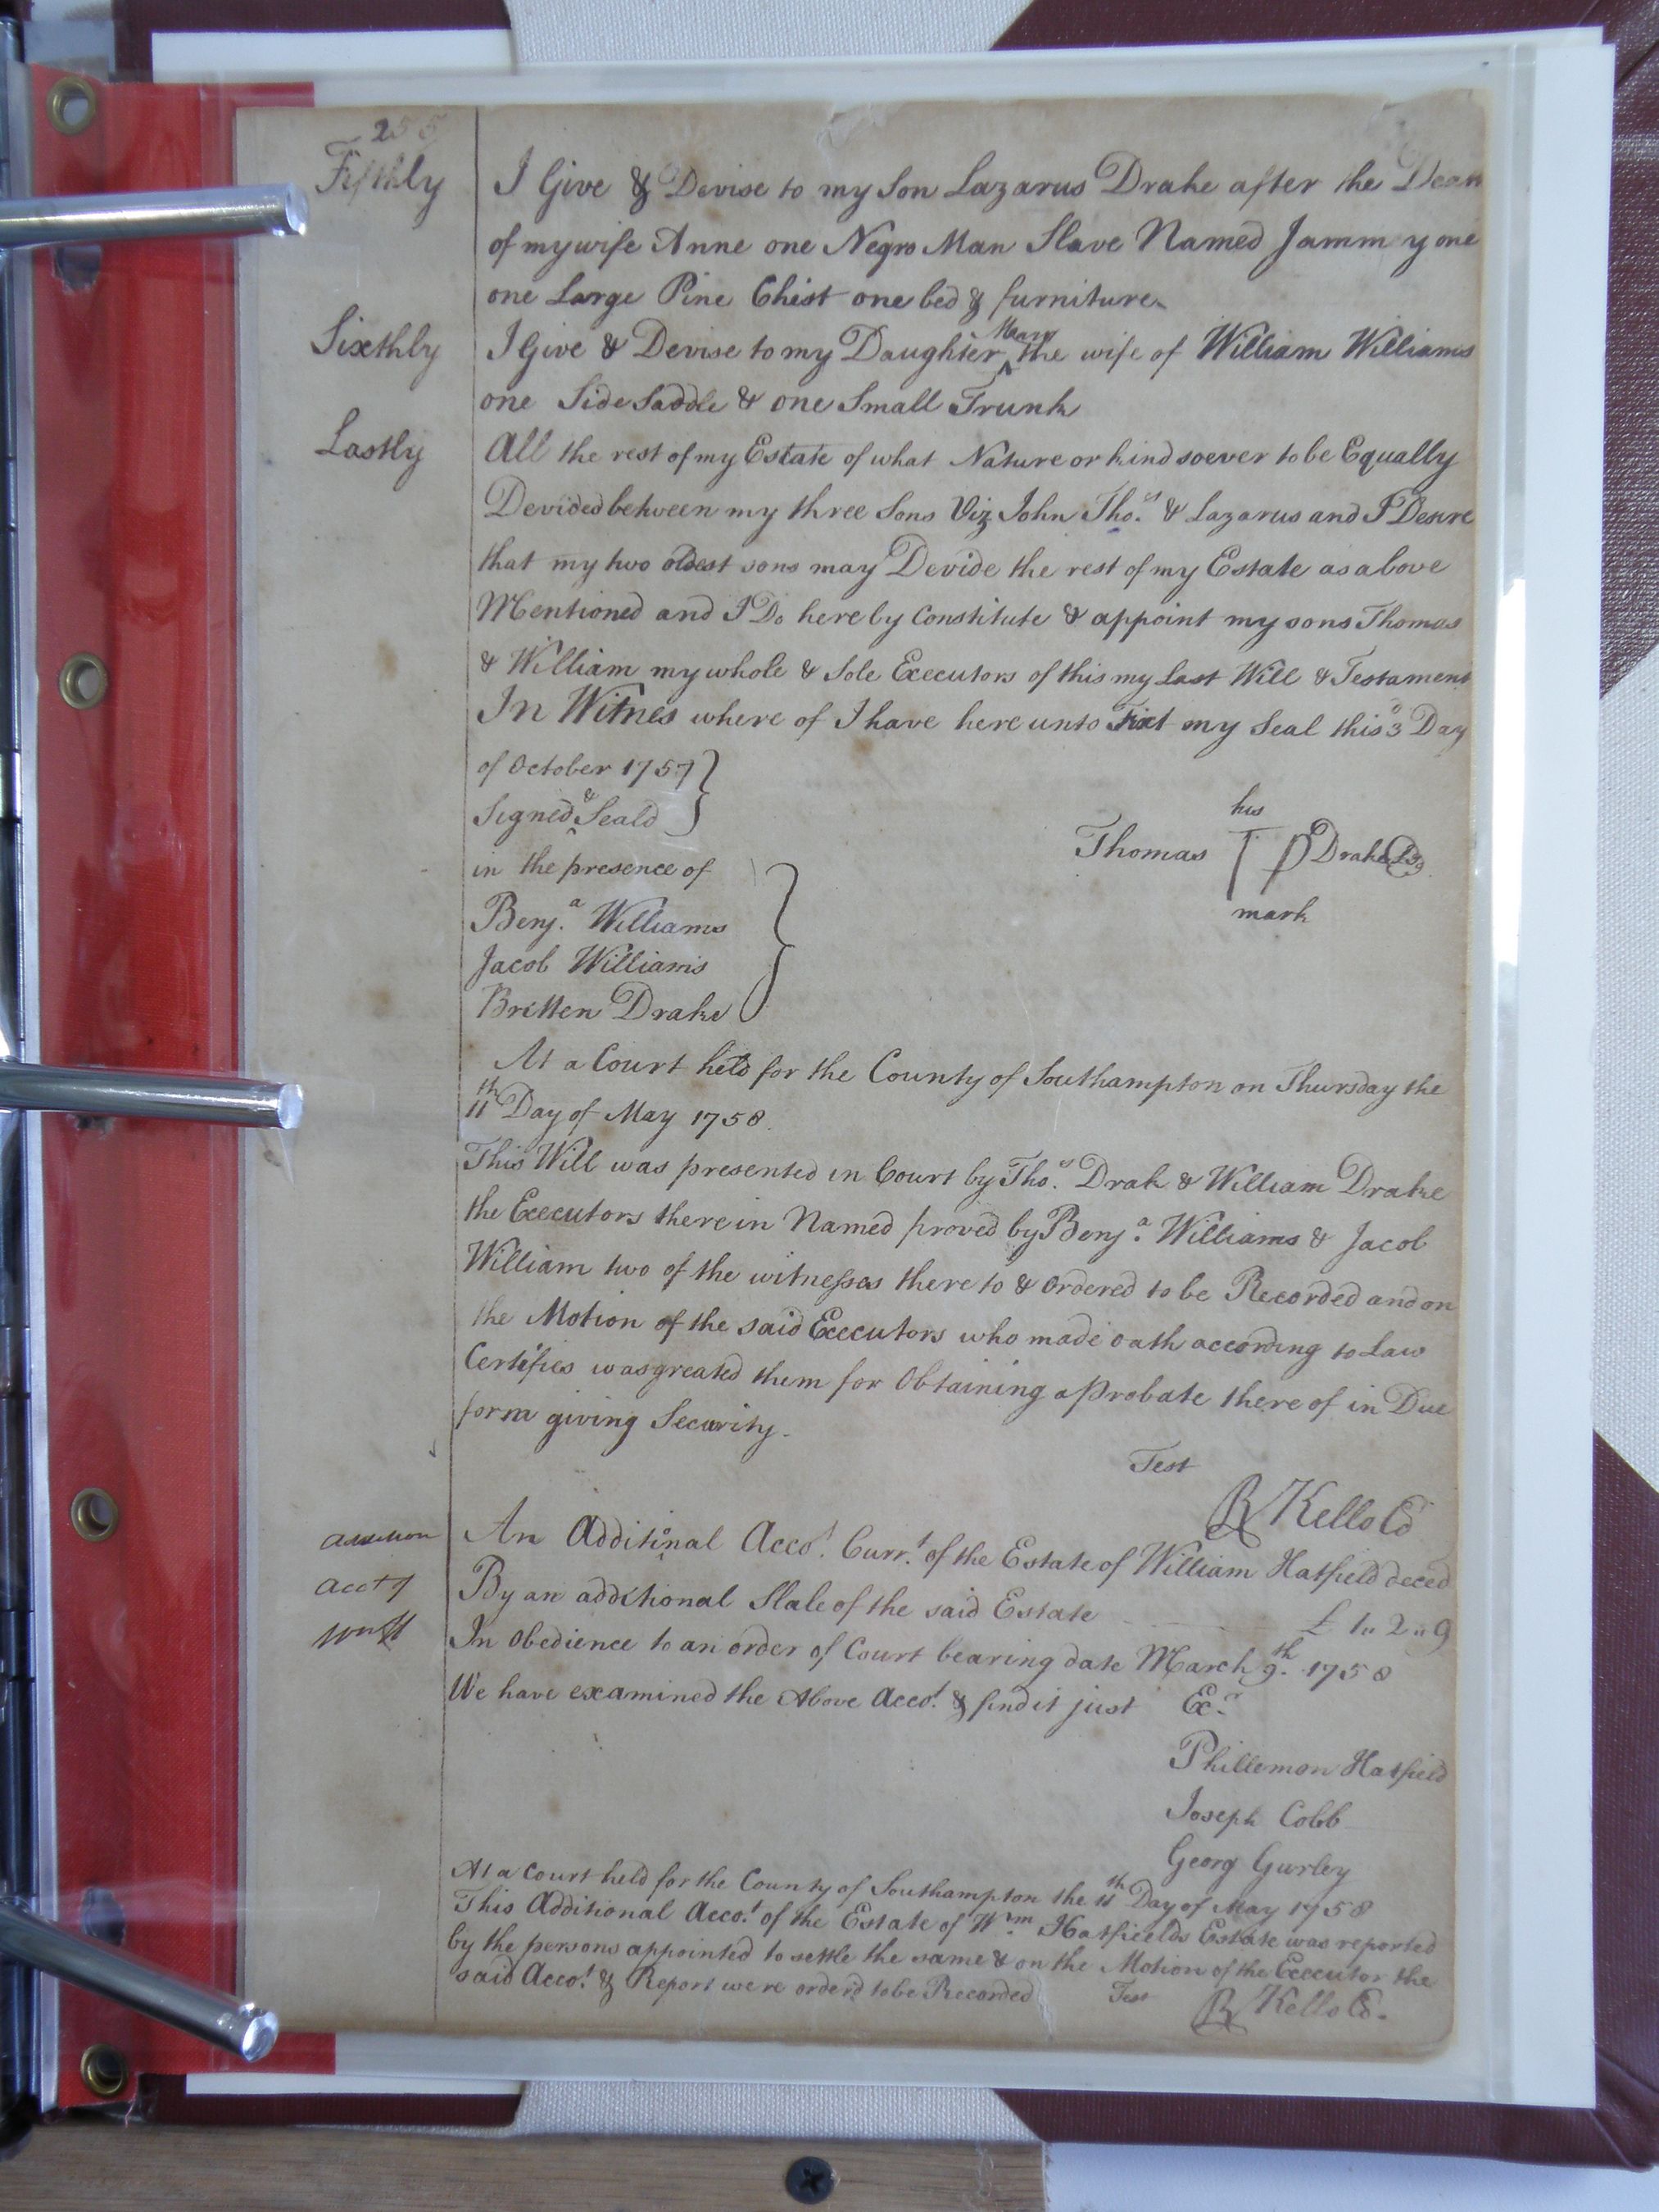 255
Fifthly I Give & Devise to my Son Lazarus Drake after the
of my wife Anne one Negro Man Slave Named Jammey one
one Large Pine Chist one bed & furniture
Sixthly I Give & Devise to my Daughter Mary the wife of William Williams
one Side Saddle & one Small Trunk
Lastly All the rest of my Estate of what Nature or kind soever to be Equally
Devided between my three Sons Viz John Thos. & Lazarus and I Desire
that my two oldest sons may Devide the rest of my Estate as above
Mentioned and I Do hereby Constitute & appoint my sons Thomas
& William my whole & Sole Executors of this my Last Will & Testament
In Witnes where of I have here unto Fixt my Seal this 3 Day
of October 1757
Signed & Seald
in the presence of
Benja. Williams
Jacob Williams
Britten Drake
his
Thomas T D Drake
mark
At a Court held for the County of Southampton on Thursday the
11th Day of May 1758
This Will was presented in Court by Thos. Drak & William Drake
the Executors there in Named proved by Benja. Williams & Jacob
William two of the witnesses there to & ordered to be Recorded and on
the Motion of the said Executors who made oath according to Law
Certifies was greated them for Obtaining a Probate there of in Due
form giving Security.
Test
R Kello Cd
An Additional Accot. Currt. of the Estate of William Hatfield deced
acct of By an additional Slale of the said Estate £ 1 " 2 " 9
In Obedience to an order of Court bearing date March 9th. 1758
We have examined the Above Accot. & find it just
Phillemon Hatfield
Joseph Cobb
Georg Gurley
At a Court held for the County of Southampton the 11th Day of May 1758
This Additional Accot. of the Estate of Wm. Hatfields Estate was reported
by the persons appointed to settle the same & on the Motion of the Executor the
said Accot. & Report were orderd to be Recorded
Test R Kello Cd.